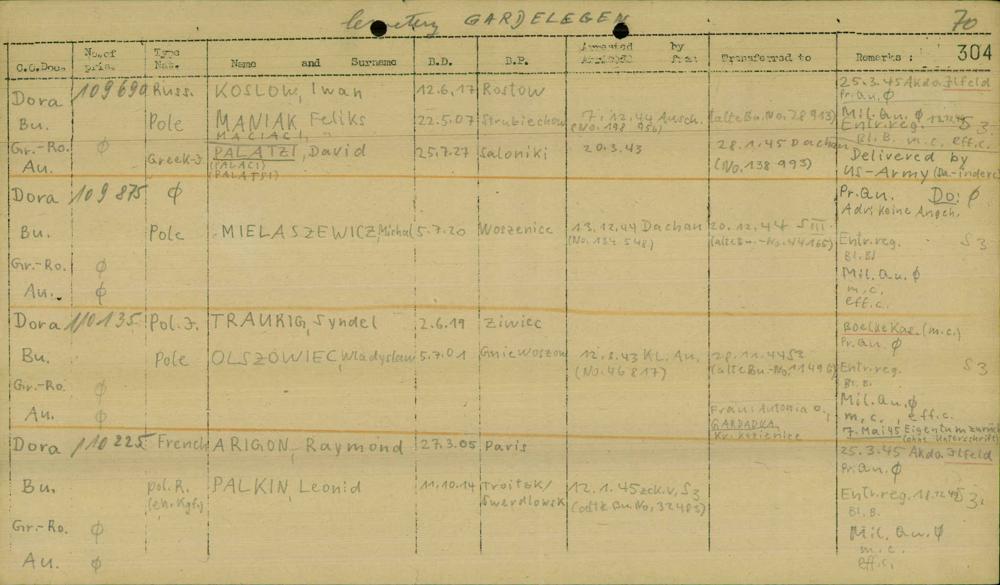 Cemetery GARDELEGEN 70
304
C.C.Doc. No. of pris. Type Nat. Name and Surname B.D. B.P. Arrested by Arrived from Transferred to Remarks :
Dora 109690 Russ. KOSLOW, Iwan 12.6.17 Rostow 25.3.45 Akdo. Ilfeld
Pr. Qu. ∅
Bu. Pole MANIAK, Feliks 22.5.07 Strubiechow 7.12.44 Ausch. (alte Bu. No. 28913) Mil. Qu. ∅
(No. 198 956) Entr. reg. S3
MACIACI, " Bl. B. m.c. eff.c.
Gr.-Ro. ∅ Greek-J. PALATZI, David 25.7.27 Saloniki 20.3.43 28.1.45 Dachau Delivered by
Au. (PALACI) (No. 138 993) US-Army
(PALATSI)
Dora 109875 ∅ Pr. Qu. Do: ∅
Adr: Keine Angeh.
Bu. Pole MIELASZEWICZ, Michal 5.7.20 Woszenice 13.12.44 Dachau 20.12.44 SIII Entr. reg. S3
(No. 134 548) (alte Bu.-No. 44165) Bl. Bl
Gr.-Ro. ∅ Mil. Qu. ∅
Au. ∅ m.c.
eff.c.
Dora 110135 Pol. J. TRAURIG, Syndel 2.6.19 Ziwiec Boelke Kas. (m.c.)
Pr. Qu. ∅
Bu. Pole OLSZOWIEC, Wladyslaw 5.7.01 Gniewoszow 12.8.43 KL. Au. 28.11.44 S3 Entr. reg. S3
(No. 46817) Bl. B.
Gr.-Ro. ∅ Mil. Qu. ∅
Au. ∅ Frau: Antonia O., m.c., eff.c.
GARDADKA, 7. Mai 45 Eigentum zurück
Kr. Kozienice (ohne Unterschrift)
Dora 110225 French ARIGON, Raymond 27.3.05 Paris 25.3.45 Akdo. Ilfeld
Pr. Qu. ∅
Bu. pol. R. PALKIN, Leonid 11.10.14 Troitzk/ 12.1.45 zck. v. S3 Entr. reg. S3.
(eh. Kgf.) Swerdlowsk (alte Bu. No. 32485) Bl. B.
Gr.-Ro. ∅ Mil. Qu. ∅
m.c.
Au. ∅ eff.c.